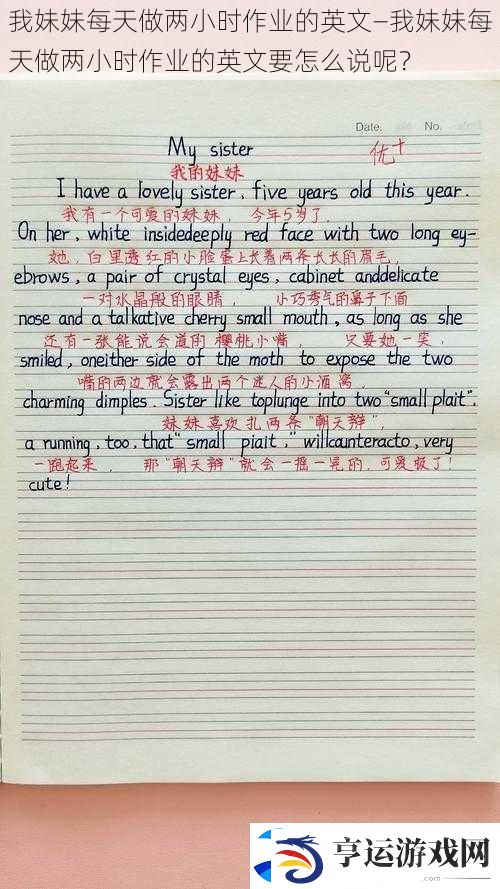 我妹妹每天做两小时作业的英文—我妹妹每
天做两小时作业的英文要怎么说呢?
Date. No.
My sister
优+
我的妹妹
I have a lovely sister, five years old this year.
我有一个可爱的妹妹, 今年5岁了.
On her, white insidedeeply red face with two long ey-
她, 白里透红的小脸蛋上长着两条长长的眉毛,
ebrows, a pair of crystal eyes, cabinet anddelicate
一对水晶般的眼睛, 小巧秀气的鼻子下面
nose and a talkative cherry small mouth, as long as she
还有一张能说会道的樱桃小嘴, 只要她一笑,
smiled, oneither side of the moth to expose the two
嘴的两边就会露出两个迷人的小酒窝,
charming dimples. Sister like toplunge into two "small plait".
妹妹喜欢扎两条"朝天辫",
a running, too, that "small piait," willcaunteracto, very
一跑起来, 那"朝天辫"就会一摇一晃的.可爱极了!
cute!
亨运游戏网